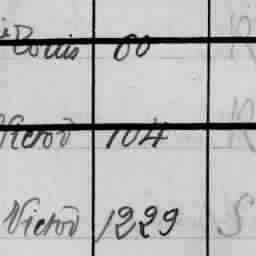 Louis 60 R
Victor 104 R
Victor 1229 S